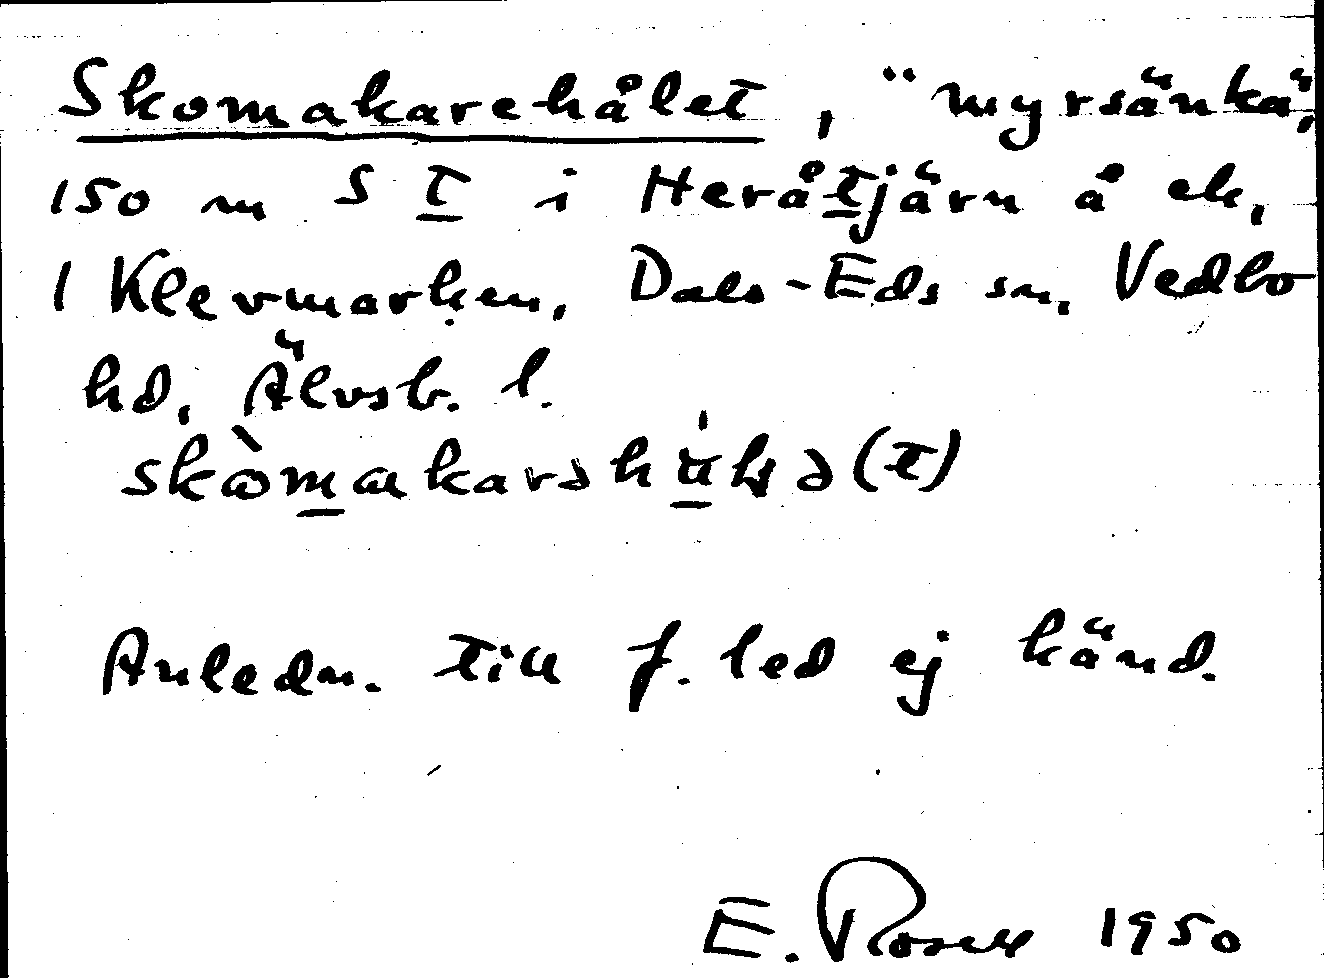 Skomakarehålet, "myrsänka",
150 m S T i Heråtjärn å ek.
1 Klevmarken, Dals-Eds sn, Vedbo
hd, Älvsb. l.
Anledn. till f. led ej känd.
E. Rosell 1950